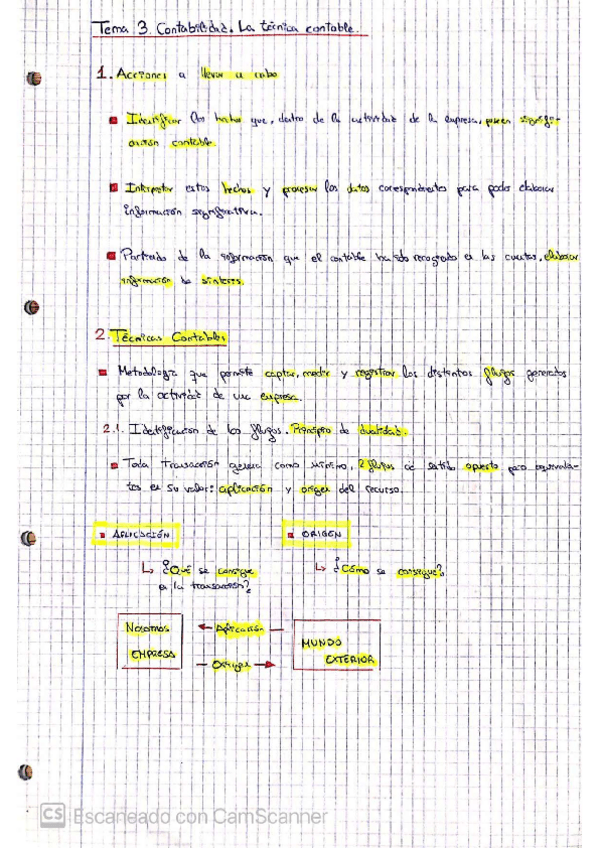 Tema 3. Contabilidad. La técnica contable.
1. Acciones a llevar a cabo
Identificar los hechos que, dentro de la actividad de la empresa, poseen signifi-
cación contable.
Interpretar estos hechos y procesar los datos correspondientes para poder elaborar
información significativa.
Partiendo de la información que el contable ha ido recogiendo en las cuentas, elaborar
información de síntesis.
2. Técnicas Contables
Metodología que permite captar, medir y registrar los distintos flujos generados
por la actividad de una empresa.
2.1. Identificación de los flujos. Principio de dualidad.
Toda transacción genera como mínimo, 2 flujos de sentido opuesto pero equivalen-
tes en su valor: aplicación y origen del recurso.
APLICACIÓN ORIGEN
↳ ¿Qué se consigue ↳ ¿Cómo se consigue?
en la transacción?
Nosotros ← Aplicación
MUNDO
EMPRESA EXTERIOR
Origen →
CS Escaneado con CamScanner